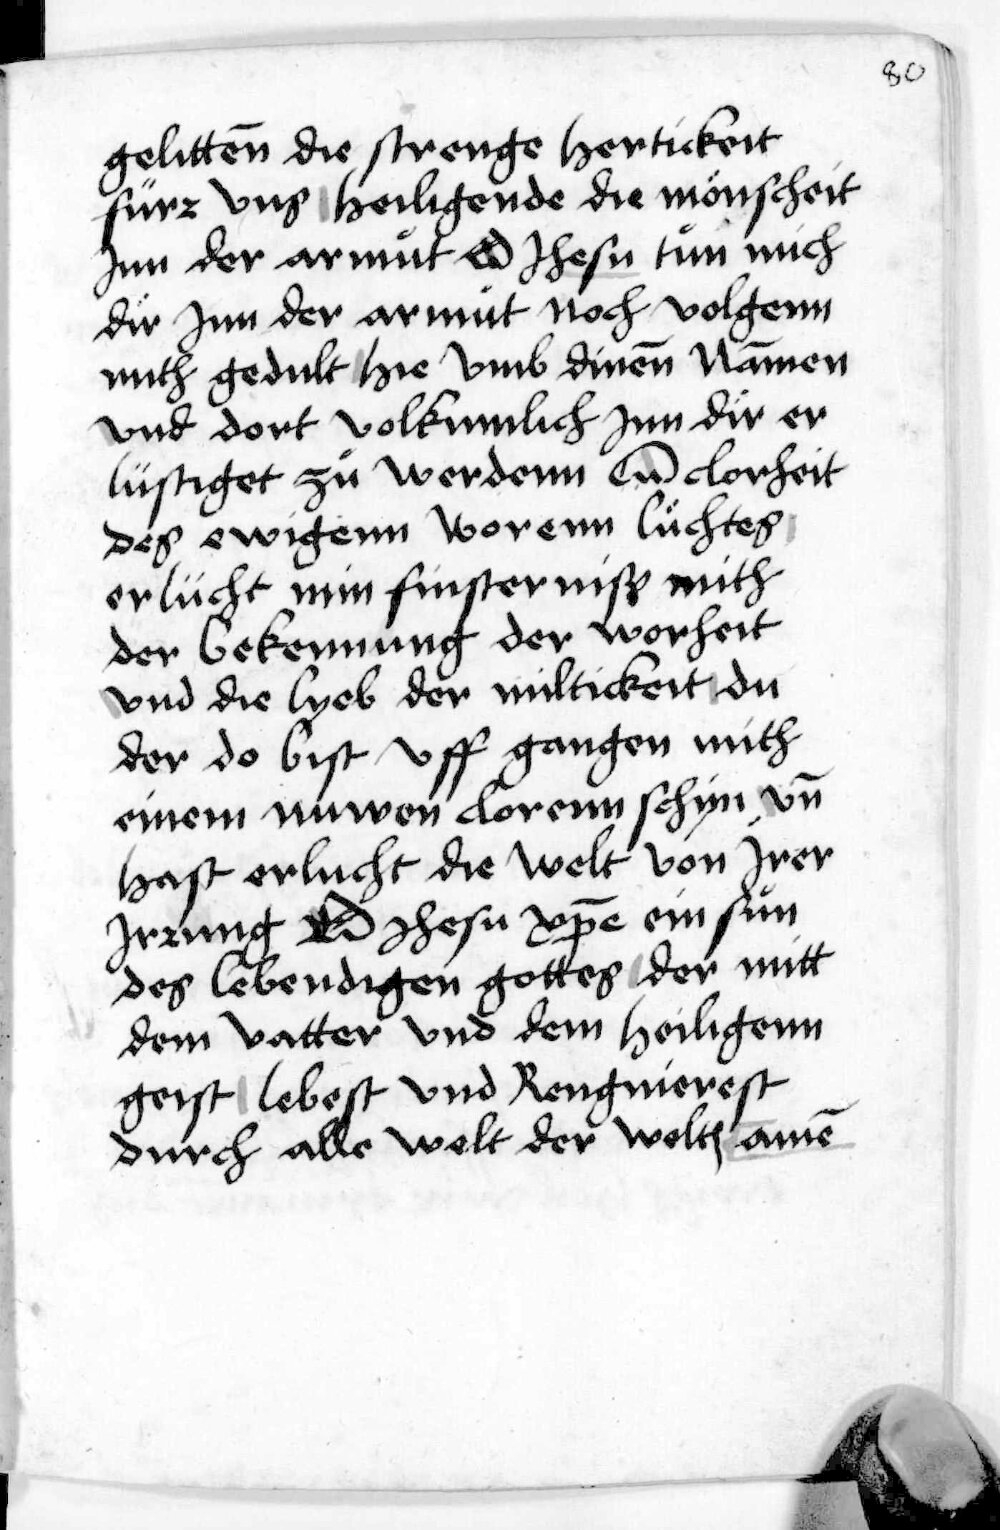 80
gelittēn die strenge hertickeit
fürz vns heiligende die mönscheit
Jnn der armůt O Jhesu tůn mich
dir Jnn der armůt noch volgenn
mith gedult hie vmb dinēn Nāmen
vnd dort volkumlich Jnn dir er
lüstiget zů werdenn O clorheit
des ewigenn worenn lüchtes
erlücht min finsternisz mith
der bekennung der worheit
vnd die lyeb der miltickeit du
der do bist vff gangen mith
einem nuwen clorenn schijn vn̄
hast erlucht die welt von Jrer
Jrrung O Jhesu xp̄e ein sůn
des lebendigen gottes der mitt
dem vatter vnd dem heiligenn
geist lebest vnd Rengnierest
durch alle welt der welt amē